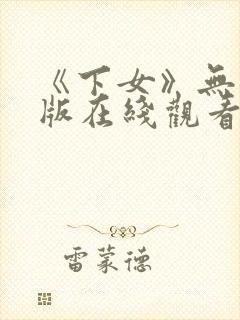 《下女》無
版在綫觀看
雷蒙德